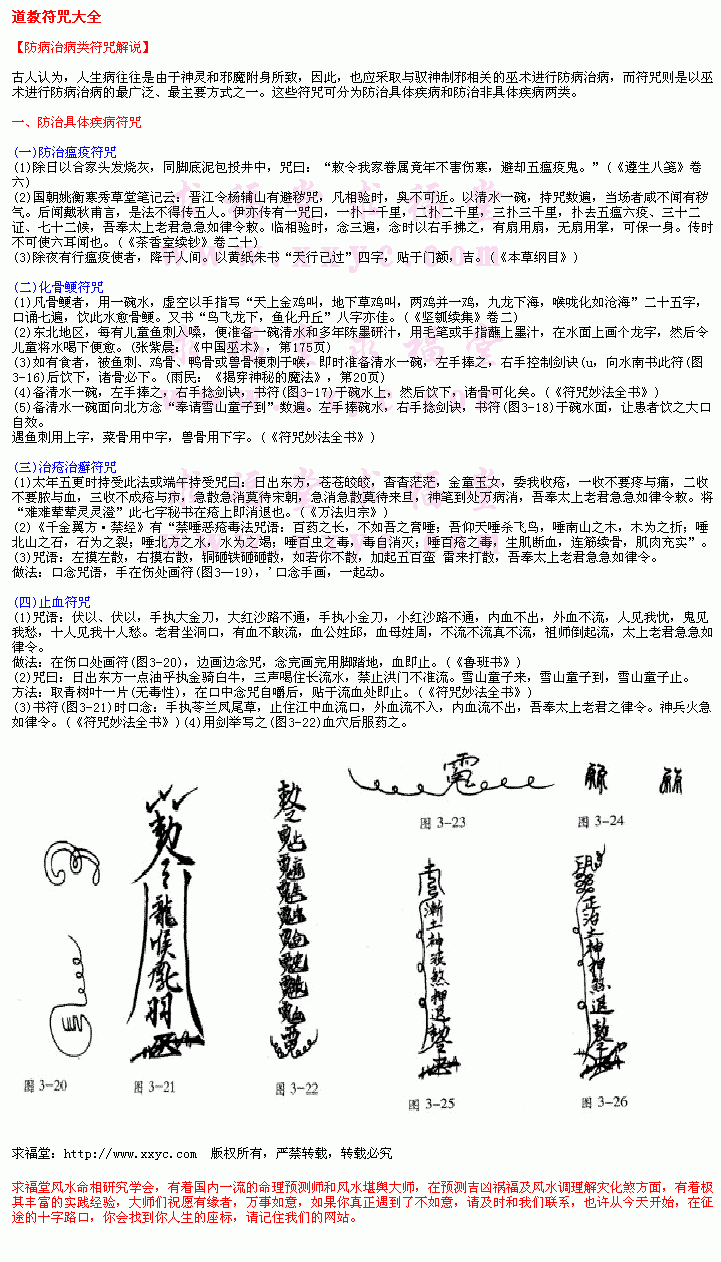 道教符咒大全
【防病治病类符咒解说】
古人认为，人生病往往是由于神灵和邪魔附身所致，因此，也应采取与驭神制邪相关的巫术进行防病治病，而符咒则是以巫
术进行防病治病的最广泛、最主要方式之一。这些符咒可分为防治具体疾病和防治非具体疾病两类。
一、防治具体疾病符咒
(一)防治瘟疫符咒
(1)除日以合家头发烧灰，同脚底泥包投井中，咒曰：“敕令我家眷属竟年不害伤寒，避却五瘟疫鬼。”(《遵生八笺》卷
六)
(2)国朝姚衡寒秀草堂笔记云：晋江令杨辅山有避秽咒，凡相验时，臭不可近。以清水一碗，持咒数遍，当场者咸不闻有秽
气。后闻戴秋甫言，是法不得传五人。伊亦传有一咒曰，一扑一千里，二扑二千里，三扑三千里，扑去五瘟六疫、三十二
证、七十二候，吾奉太上老君急急如律令敕。临相验时，念三遍，念时以右手拂之，有扇用扇，无扇用掌，可保一身。传时
不可使六耳闻也。(《茶香室续钞》卷二十)
(3)除夜有行瘟疫使者，降于人间。以黄纸朱书“天行已过”四字，贴于门额，吉。(《本草纲目》)
(二)化骨鲠符咒
(1)凡骨鲠者，用一碗水，虚空以手指写“天上金鸡叫，地下草鸡叫，两鸡并一鸡，九龙下海，喉咙化如沧海”二十五字，
口诵七遍，饮此水愈骨鲠。又书“鸟飞龙下，鱼化丹丘”八字亦佳。(《坚瓠续集》卷二)
(2)东北地区，每有儿童鱼刺入嗓，便准备一碗清水和多年陈墨研汁，用毛笔或手指蘸上墨汁，在水面上画个龙字，然后令
儿童将水喝下便愈。(张紫晨：《中国巫术》，第175页)
(3)如有食者，被鱼刺、鸡骨、鸭骨或兽骨梗刺于喉，即时准备清水一碗，左手捧之，右手控制剑诀(u，向水南书此符(图
3-16)后饮下，诸骨必下。(雨民：《揭穿神秘的魔法》，第20页)
(4)备清水一碗，左手捧之，右手捻剑诀，书符(图3-17)于碗水上，然后饮下，诸骨可化矣。(《符咒妙法全书》)
(5)备清水一碗面向北方念“奉请雪山童子到”数遍。左手捧碗水，右手捻剑诀，书符(图3-18)于碗水面，让患者饮之大口
自效。
遇鱼刺用上字，菜骨用中字，兽骨用下字。(《符咒妙法全书》)
(三)治疮治癣符咒
(1)太年五更时持受此法或端午持受咒曰：日出东方，苍苍皎皎，杳杳茫茫，金童玉女，委我收疮，一收不要疼与痛，二收
不要脓与血，三收不成疮与疖，急散急消莫待宋朝，急消急散莫待来旦，神笔到处万病消，吾奉太上老君急急如律令敕。将
“难难荤荤灵灵澄”此七字秘书在疮上即消退也。(《万法归宗》)
(2)《千金翼方·禁轻》有“禁唾恶疮毒法咒语：百药之长，不如吾之膏唾；吾仰天唾杀飞鸟，唾南山之木，木为之折；唾
北山之石，石为之裂；唾北方之水，水为之竭；唾百虫之毒，毒自消灭；唾百疮之毒，生肌断血，连筋续骨，肌肉充实”。
(3)咒语：左摸左散，右摸右散，铜砸铁砸砸散，如若你不散，加起五百蛮 雷来打散，吾奉太上老君急急如律令。
做法：口念咒语，手在伤处画符(图3—19)，'口念手画，一起动。
(四)止血符咒
(1)咒语：伏以、伏以，手执大金刀，大红沙路不通，手执小金刀，小红沙路不通，内血不出，外血不流，人见我忧，鬼见
我愁，十人见我十人愁。老君坐洞口，有血不敢流，血公姓邱，血母姓周，不流不流真不流，祖师倒起流，太上老君急急如
律令。
做法：在伤口处画符(图3-20)，边画边念咒，念完画完用脚踏地，血即止。(《鲁班书》)
(2)咒曰：日出东方一点油平执金骑白牛，三声喝住长流水，禁止洪门不准流。雪山童子来，雪山童子到，雪山童子止。
方法：取青树叶一片(无毒性)，在口中念咒自嚼后，贴于流血处即止。(《符咒妙法全书》)
(3)书符(图3-21)时口念：手执苓兰凤尾草，止住江中血流口，外血流不入，内血流不出，吾奉太上老君之律令。神兵火急
如律令。(《符咒妙法全书》)(4)用剑举写之(图3-22)血穴后服药之。
图 3-23
图 3-24
图 3-20
图 3-21
图 3-22
图 3-25
图 3-26
求福堂：http://www.xxyc.com 版权所有，严禁转载，转载必究
求福堂风水命相研究学会，有着国内一流的命理预测师和风水堪舆大师，在预测吉凶祸福及风水调理解灾化煞方面，有着极
其丰富的实践经验，大师们祝愿有缘者，万事如意，如果你真正遇到了不如意，请及时和我们联系，也许从今天开始，在征
途的十字路口，你会找到你人生的座标，请记住我们的网站。